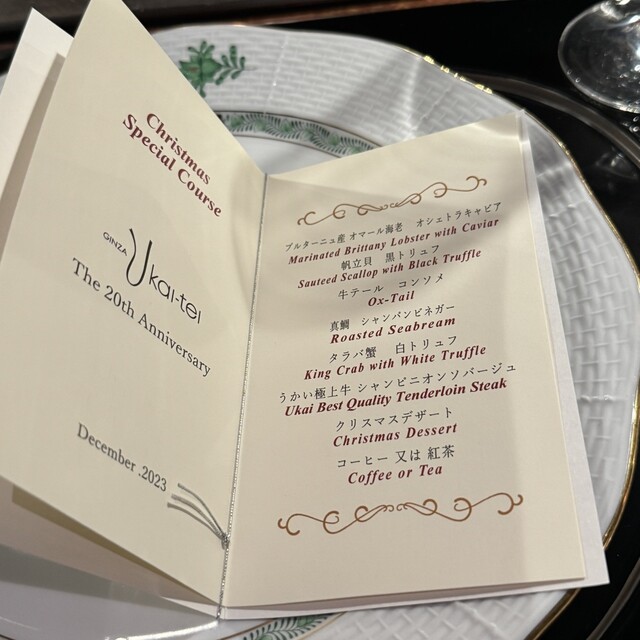 Christmas
Special Course
GINZA
Ukai-tei
The 20th Anniversary
December .2023
ブルターニュ産 オマール海老 オシェトラキャビア
Marinated Brittany Lobster with Caviar
帆立貝 黒トリュフ
Sauteed Scallop with Black Truffle
牛テール コンソメ
Ox-Tail
真鯛 シャンパンビネガー
Roasted Seabream
タラバ蟹 白トリュフ
King Crab with White Truffle
うかい極上牛 シャンピニオンソバージュ
Ukai Best Quality Tenderloin Steak
クリスマスデザート
Christmas Dessert
コーヒー 又は 紅茶
Coffee or Tea